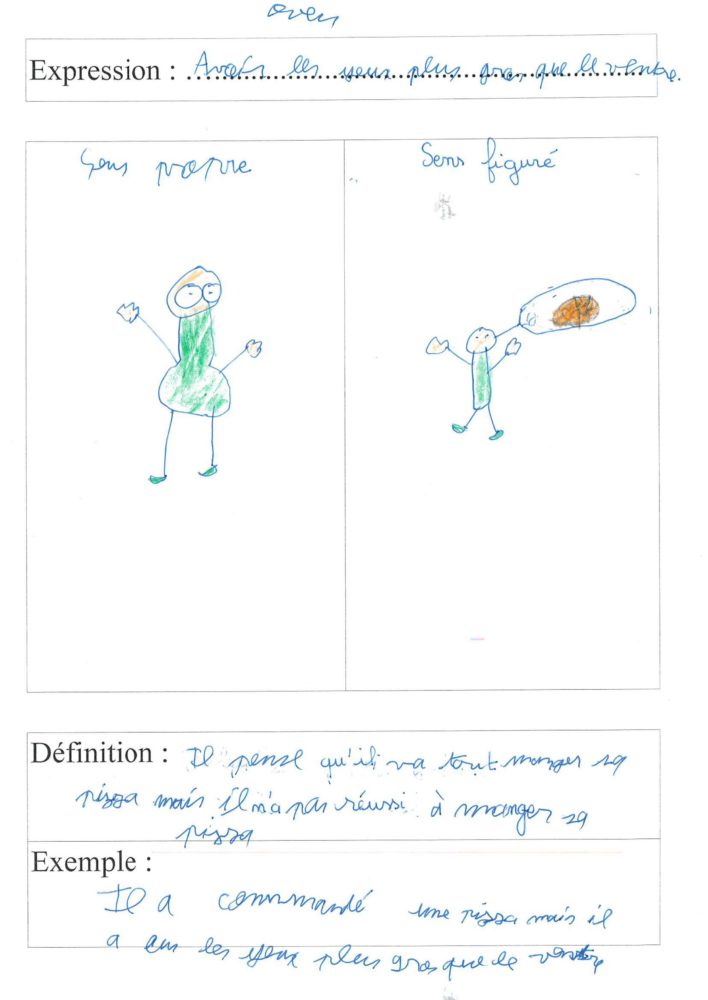 Owen
Expression : Avoir les yeux plus gros que le ventre.
Sens propre
Sens figuré
Définition : Il pense qu'il va tout manger sa
pizza mais il n'a pas réussi à manger sa
pizza
Exemple :
Il a commandé une pizza mais il
a eu les yeux plus gros que le ventre